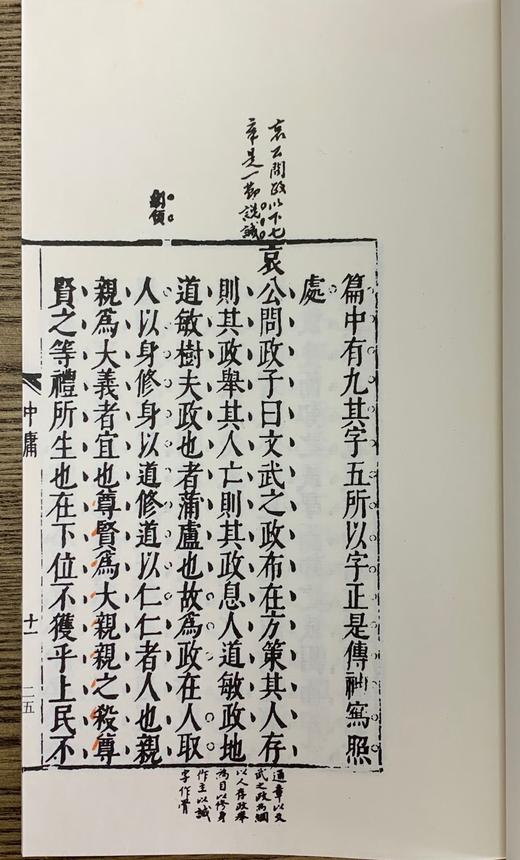 哀公問政以下七
章是一節說誠
劃領
篇中有九其字五所以字正是傳神寫照
處
哀公問政子曰文武之政布在方策其人存
則其政舉其人亡則其政息人道敏政地
道敏樹夫政也者蒲盧也故爲政在人取
人以身修身以道修道以仁仁者人也親
親爲大義者宜也尊賢爲大親親之殺尊
賢之等禮所生也在下位不獲乎上民不
中庸
十一
二五
通章以文
武之政爲綱
以人存政舉
爲目以修身
作主以誠
字作骨